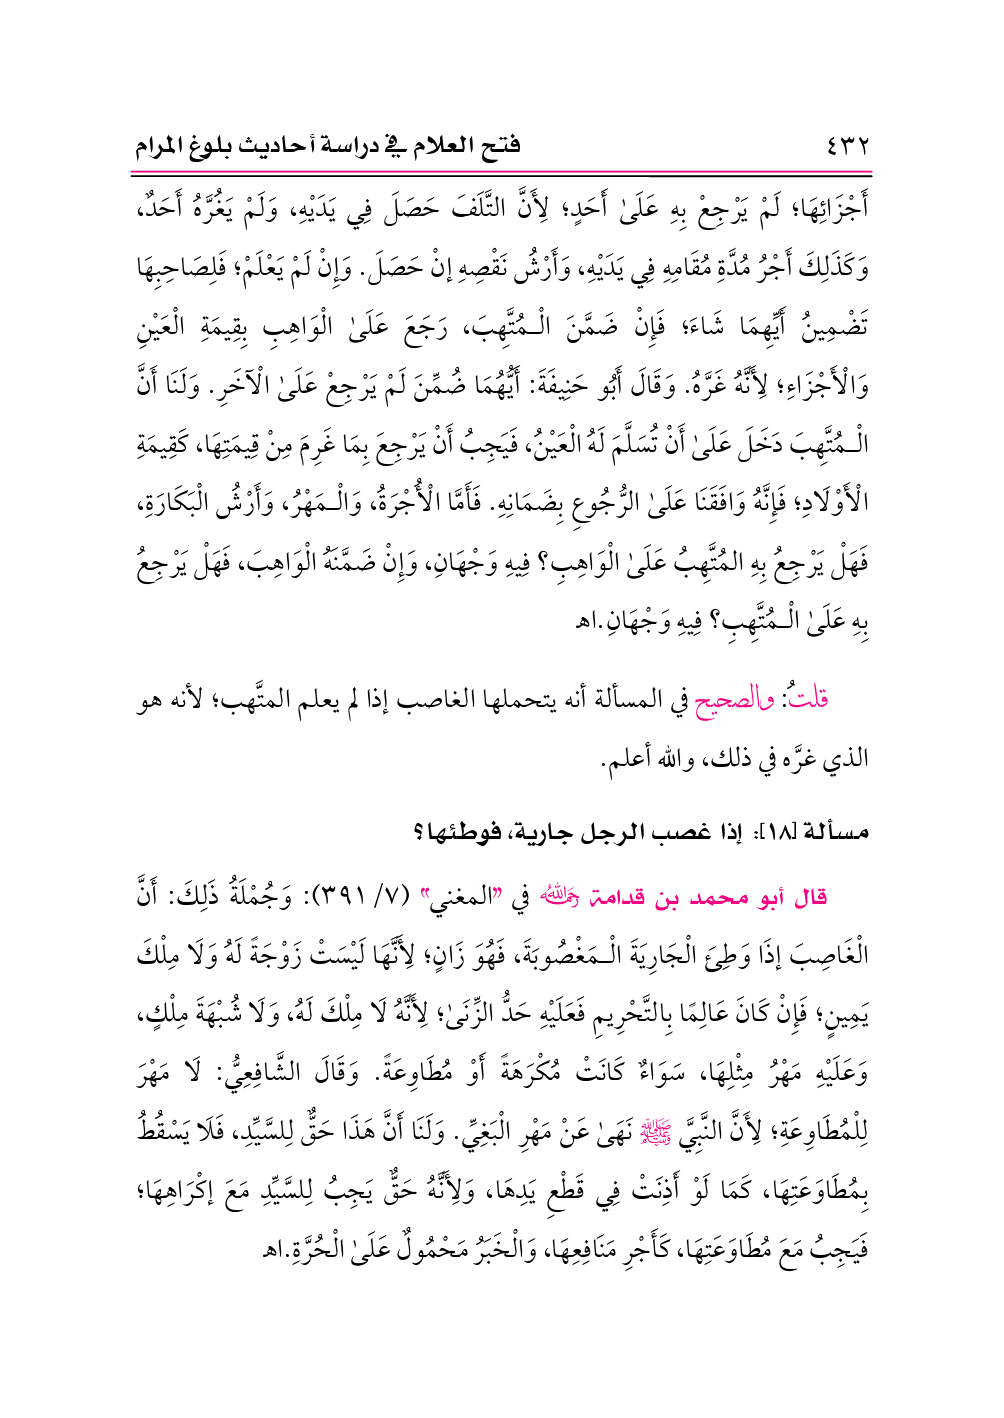 ٤٣٢ فتح العلام في دراسة أحاديث بلوغ المرام
أَجْزَائِهَا؛ لَمْ يَرْجِعْ بِهِ عَلَىٰ أَحَدٍ؛ لِأَنَّ التَّلَفَ حَصَلَ فِي يَدَيْهِ، وَلَمْ يَغُرَّهُ أَحَدٌ،
وَكَذَلِكَ أَجْرُ مُدَّةِ مُقَامِهِ فِي يَدَيْهِ، وَأَرْشُ نَقْصِهِ إنْ حَصَلَ. وَإِنْ لَمْ يَعْلَمْ؛ فَلِصَاحِبِهَا
تَضْمِينُ أَيِّهِمَا شَاءَ؛ فَإِنْ ضَمَّنَ الْـمُتَّهِبَ، رَجَعَ عَلَىٰ الْوَاهِبِ بِقِيمَةِ الْعَيْنِ
وَالْأَجْزَاءِ؛ لِأَنَّهُ غَرَّهُ. وَقَالَ أَبُو حَنِيفَةَ: أَيُّهُمَا ضُمِّنَ لَمْ يَرْجِعْ عَلَىٰ الْآخَرِ. وَلَنَا أَنَّ
الْـمُتَّهِبَ دَخَلَ عَلَىٰ أَنْ تُسَلَّمَ لَهُ الْعَيْنُ، فَيَجِبُ أَنْ يَرْجِعَ بِمَا غَرِمَ مِنْ قِيمَتِهَا، كَقِيمَةِ
الْأَوْلَادِ؛ فَإِنَّهُ وَافَقَنَا عَلَىٰ الرُّجُوعِ بِضَمَانِهِ. فَأَمَّا الْأُجْرَةُ، وَالْـمَهْرُ، وَأَرْشُ الْبَكَارَةِ،
فَهَلْ يَرْجِعُ بِهِ المُتَّهِبُ عَلَىٰ الْوَاهِبِ؟ فِيهِ وَجْهَانِ، وَإِنْ ضَمَّنَهُ الْوَاهِبَ، فَهَلْ يَرْجِعُ
بِهِ عَلَىٰ الْـمُتَّهِبِ؟ فِيهِ وَجْهَانِ.اهـ
قلتُ: والصحيح في المسألة أنه يتحملها الغاصب إذا لم يعلم المتَّهب؛ لأنه هو
الذي غرَّه في ذلك، والله أعلم.
مسألة [١٨]: إذا غصب الرجل جارية، فوطئها؟
قال أبو محمد بن قدامة رحمه الله في "المغني" (٧/ ٣٩١): وَجُمْلَةُ ذَلِكَ: أَنَّ
الْغَاصِبَ إذَا وَطِئَ الْجَارِيَةَ الْـمَغْصُوبَةَ، فَهُوَ زَانٍ؛ لِأَنَّهَا لَيْسَتْ زَوْجَةً لَهُ وَلَا مِلْكَ
يَمِينٍ؛ فَإِنْ كَانَ عَالِمًا بِالتَّحْرِيمِ فَعَلَيْهِ حَدُّ الزِّنَىٰ؛ لِأَنَّهُ لَا مِلْكَ لَهُ، وَلَا شُبْهَةَ مِلْكٍ،
وَعَلَيْهِ مَهْرُ مِثْلِهَا، سَوَاءٌ كَانَتْ مُكْرَهَةً أَوْ مُطَاوِعَةً. وَقَالَ الشَّافِعِيُّ: لَا مَهْرَ
لِلْمُطَاوِعَةِ؛ لِأَنَّ النَّبِيَّ ﷺ نَهَىٰ عَنْ مَهْرِ الْبَغِيِّ. وَلَنَا أَنَّ هَذَا حَقٌّ لِلسَّيِّدِ، فَلَا يَسْقُطُ
بِمُطَاوَعَتِهَا، كَمَا لَوْ أَذِنَتْ فِي قَطْعِ يَدِهَا، وَلِأَنَّهُ حَقٌّ يَجِبُ لِلسَّيِّدِ مَعَ إكْرَاهِهَا؛
فَيَجِبُ مَعَ مُطَاوَعَتِهَا، كَأَجْرِ مَنَافِعِهَا، وَالْخَبَرُ مَحْمُولٌ عَلَىٰ الْحُرَّةِ.اهـ